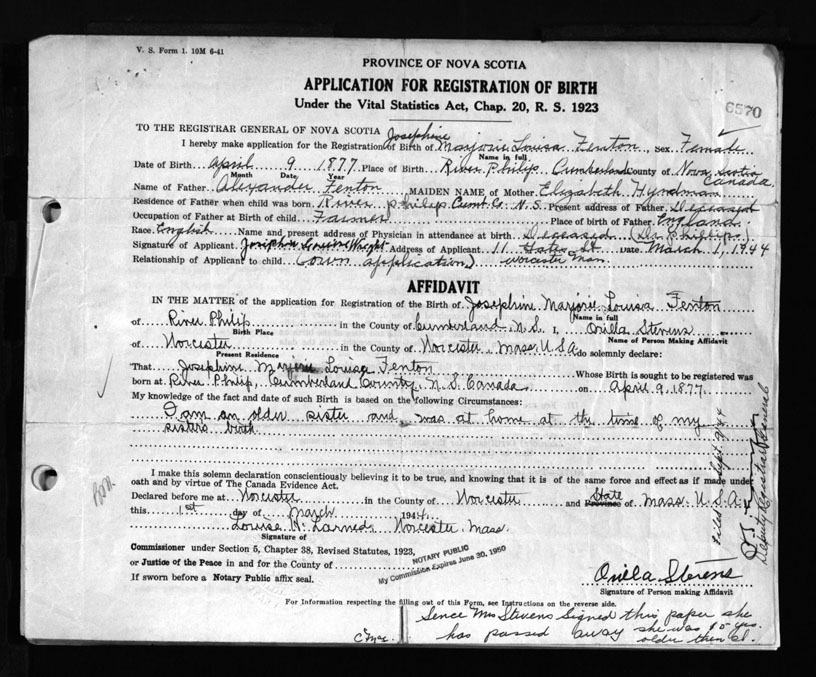 V. S. Form 1. 10M 6-41
PROVINCE OF NOVA SCOTIA
APPLICATION FOR REGISTRATION OF BIRTH
Under the Vital Statistics Act, Chap. 20, R. S. 1923
6570
TO THE REGISTRAR GENERAL OF NOVA SCOTIA Josephine
I hereby make application for the Registration of Birth of Marjorie Louisa Fenton Sex Female
Name in full
Date of Birth April 9 1877 Place of Birth River Philip Cumberland County of Nova Scotia
Month Day Year Canada
Name of Father Alexander Fenton MAIDEN NAME of Mother Elizabeth Hyndman
Residence of Father when child was born River Philip Cumb. Co. N.S. Present address of Father Deceased
Occupation of Father at Birth of child Farmer Place of birth of Father England
Race English Name and present address of Physician in attendance at birth Deceased (Dr Phillips)
Signature of Applicant Josephine Louise Wright Address of Applicant 11 St. Date March 1, 1944
Relationship of Applicant to child (own application) Worcester Mass.
AFFIDAVIT
IN THE MATTER of the application for Registration of the Birth of Josephine Marjorie Louisa Fenton
Name in full
of River Philip in the County of Cumberland N.S. I, Orilla Stevens
Birth Place Name of Person Making Affidavit
of Worcester in the County of Worcester, Mass. U S A do solemnly declare:
Present Residence
That Josephine Marjorie Louisa Fenton Whose Birth is sought to be registered was
born at River Philip, Cumberland County, N.S. Canada on April 9, 1877.
My knowledge of the fact and date of such Birth is based on the following Circumstances:
I am an older sister and was at home at the time of my
sisters birth.
I make this solemn declaration conscientiously believing it to be true, and knowing that it is of the same force and effect as if made under
oath and by virtue of The Canada Evidence Act.
State
Declared before me at Worcester in the County of Worcester and Province of Mass. U.S.A.
this 1st day of March 1944
Louisa H. Larned, Worcester Mass.
Signature of
Commissioner under Section 5, Chapter 38, Revised Statutes, 1923,
or Justice of the Peace in and for the County of
If sworn before a Notary Public affix seal.
NOTARY PUBLIC
My Commission Expires June 30, 1950
Filed Sept 9/44
Deputy Registrar General
Orilla Stevens
Signature of Person making Affidavit
For Information respecting the filling out of this Form, see Instructions on the reverse side.
Sence Mrs Stevens Signed this paper she
has passed away she was 15 yrs.
older then I.